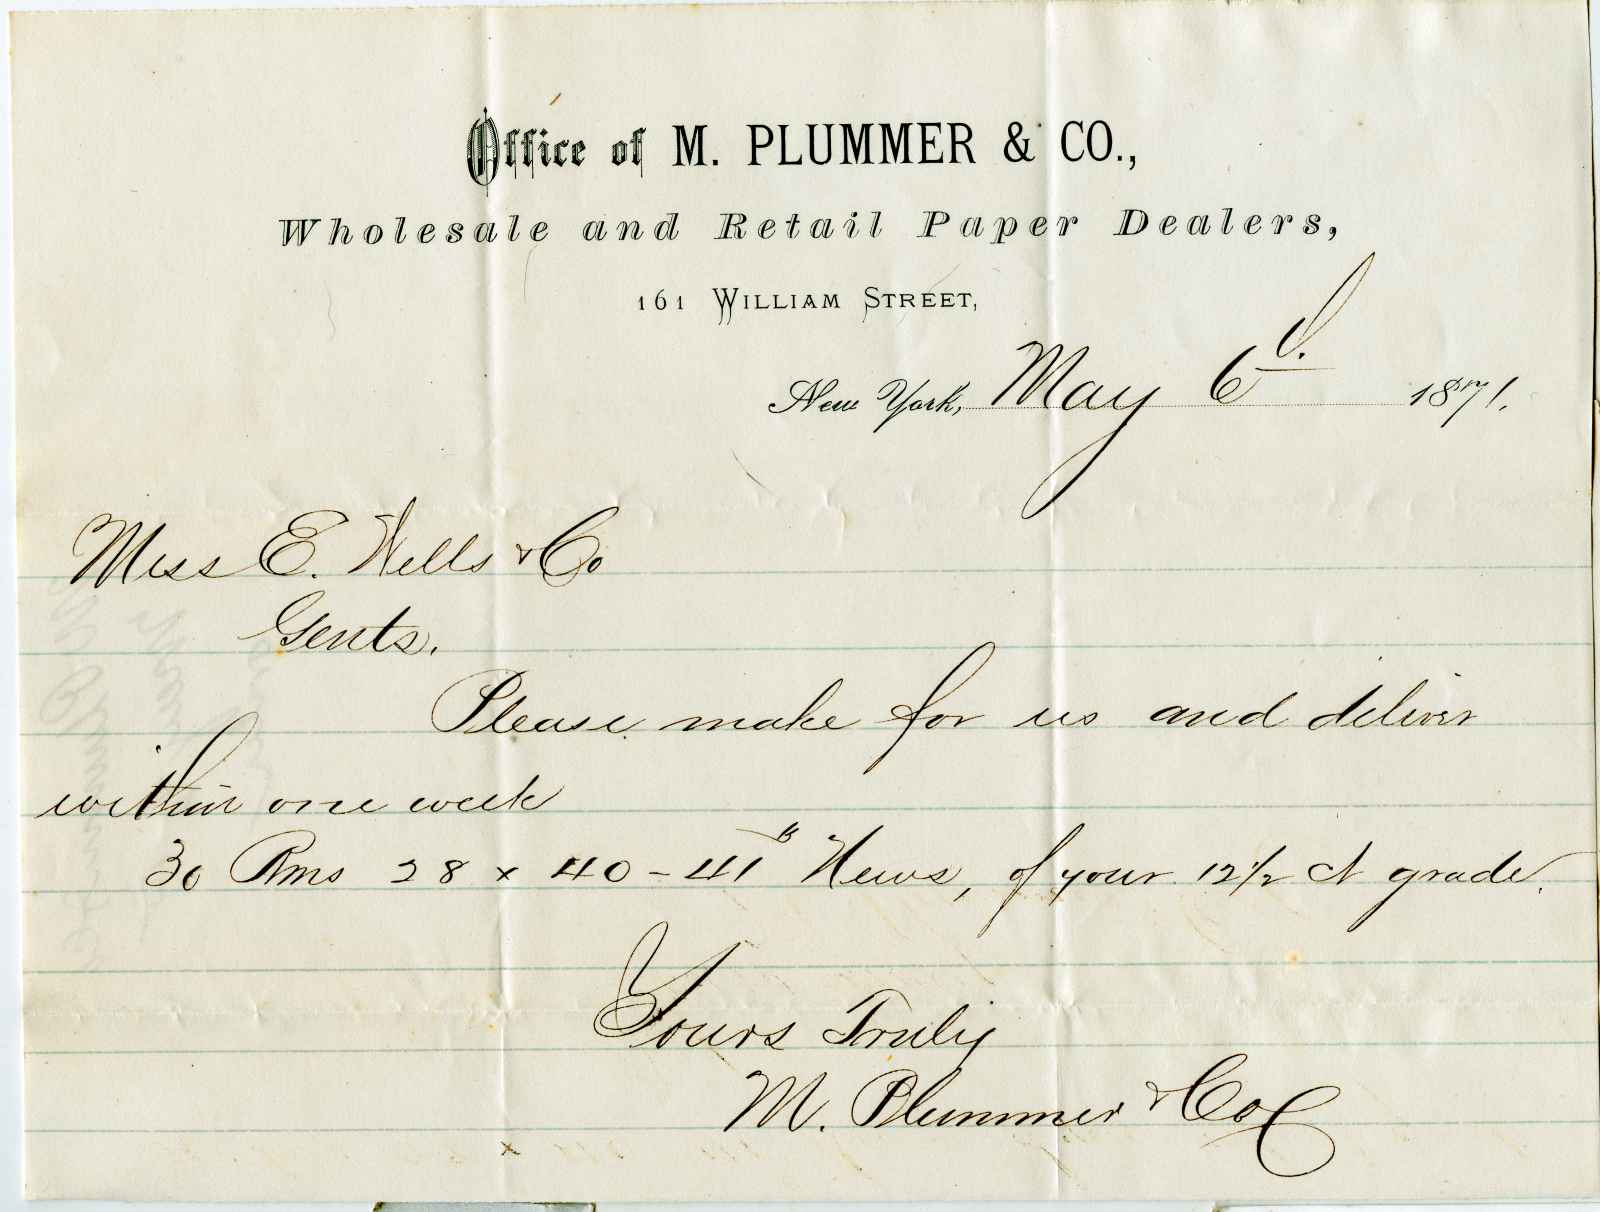 Office of M. PLUMMER & CO.,
Wholesale and Retail Paper Dealers,
161 WILLIAM STREET,
New York, May 6d. 1871.
Mess E. Wells & Co
Gents.
Please make for us and deliver
within one week
30 Rms 28 x 40 - 41 lb News, of your 12 1/2 ct grade.
Yours Truly
M. Plummer & Co
x